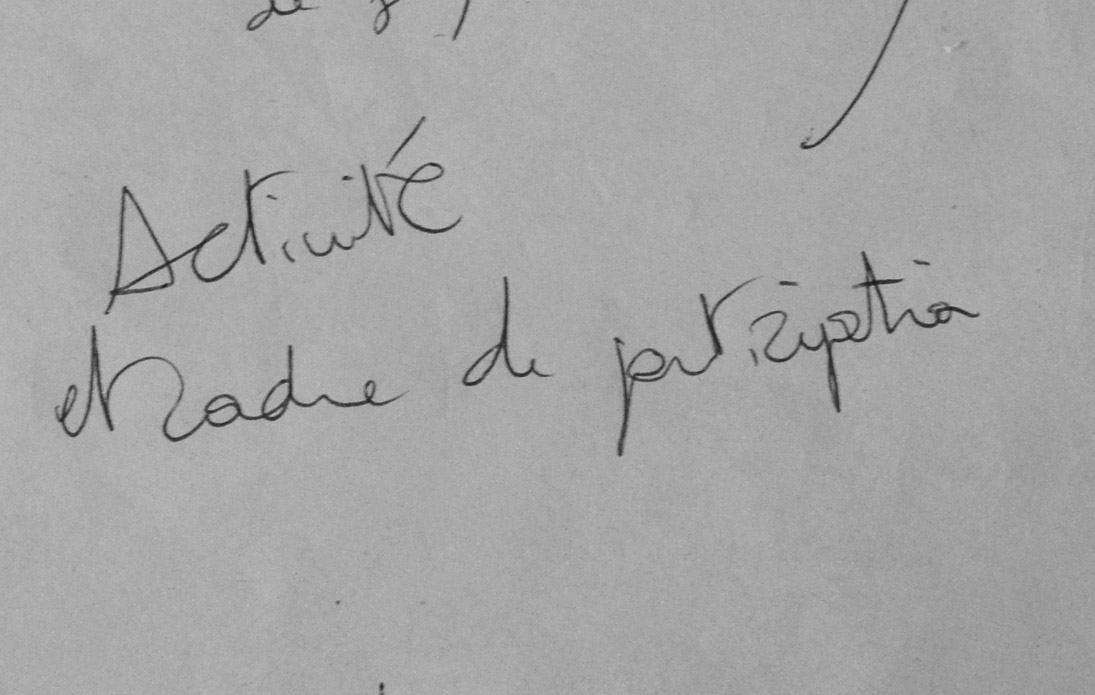 de
Activité
et cadre de participation